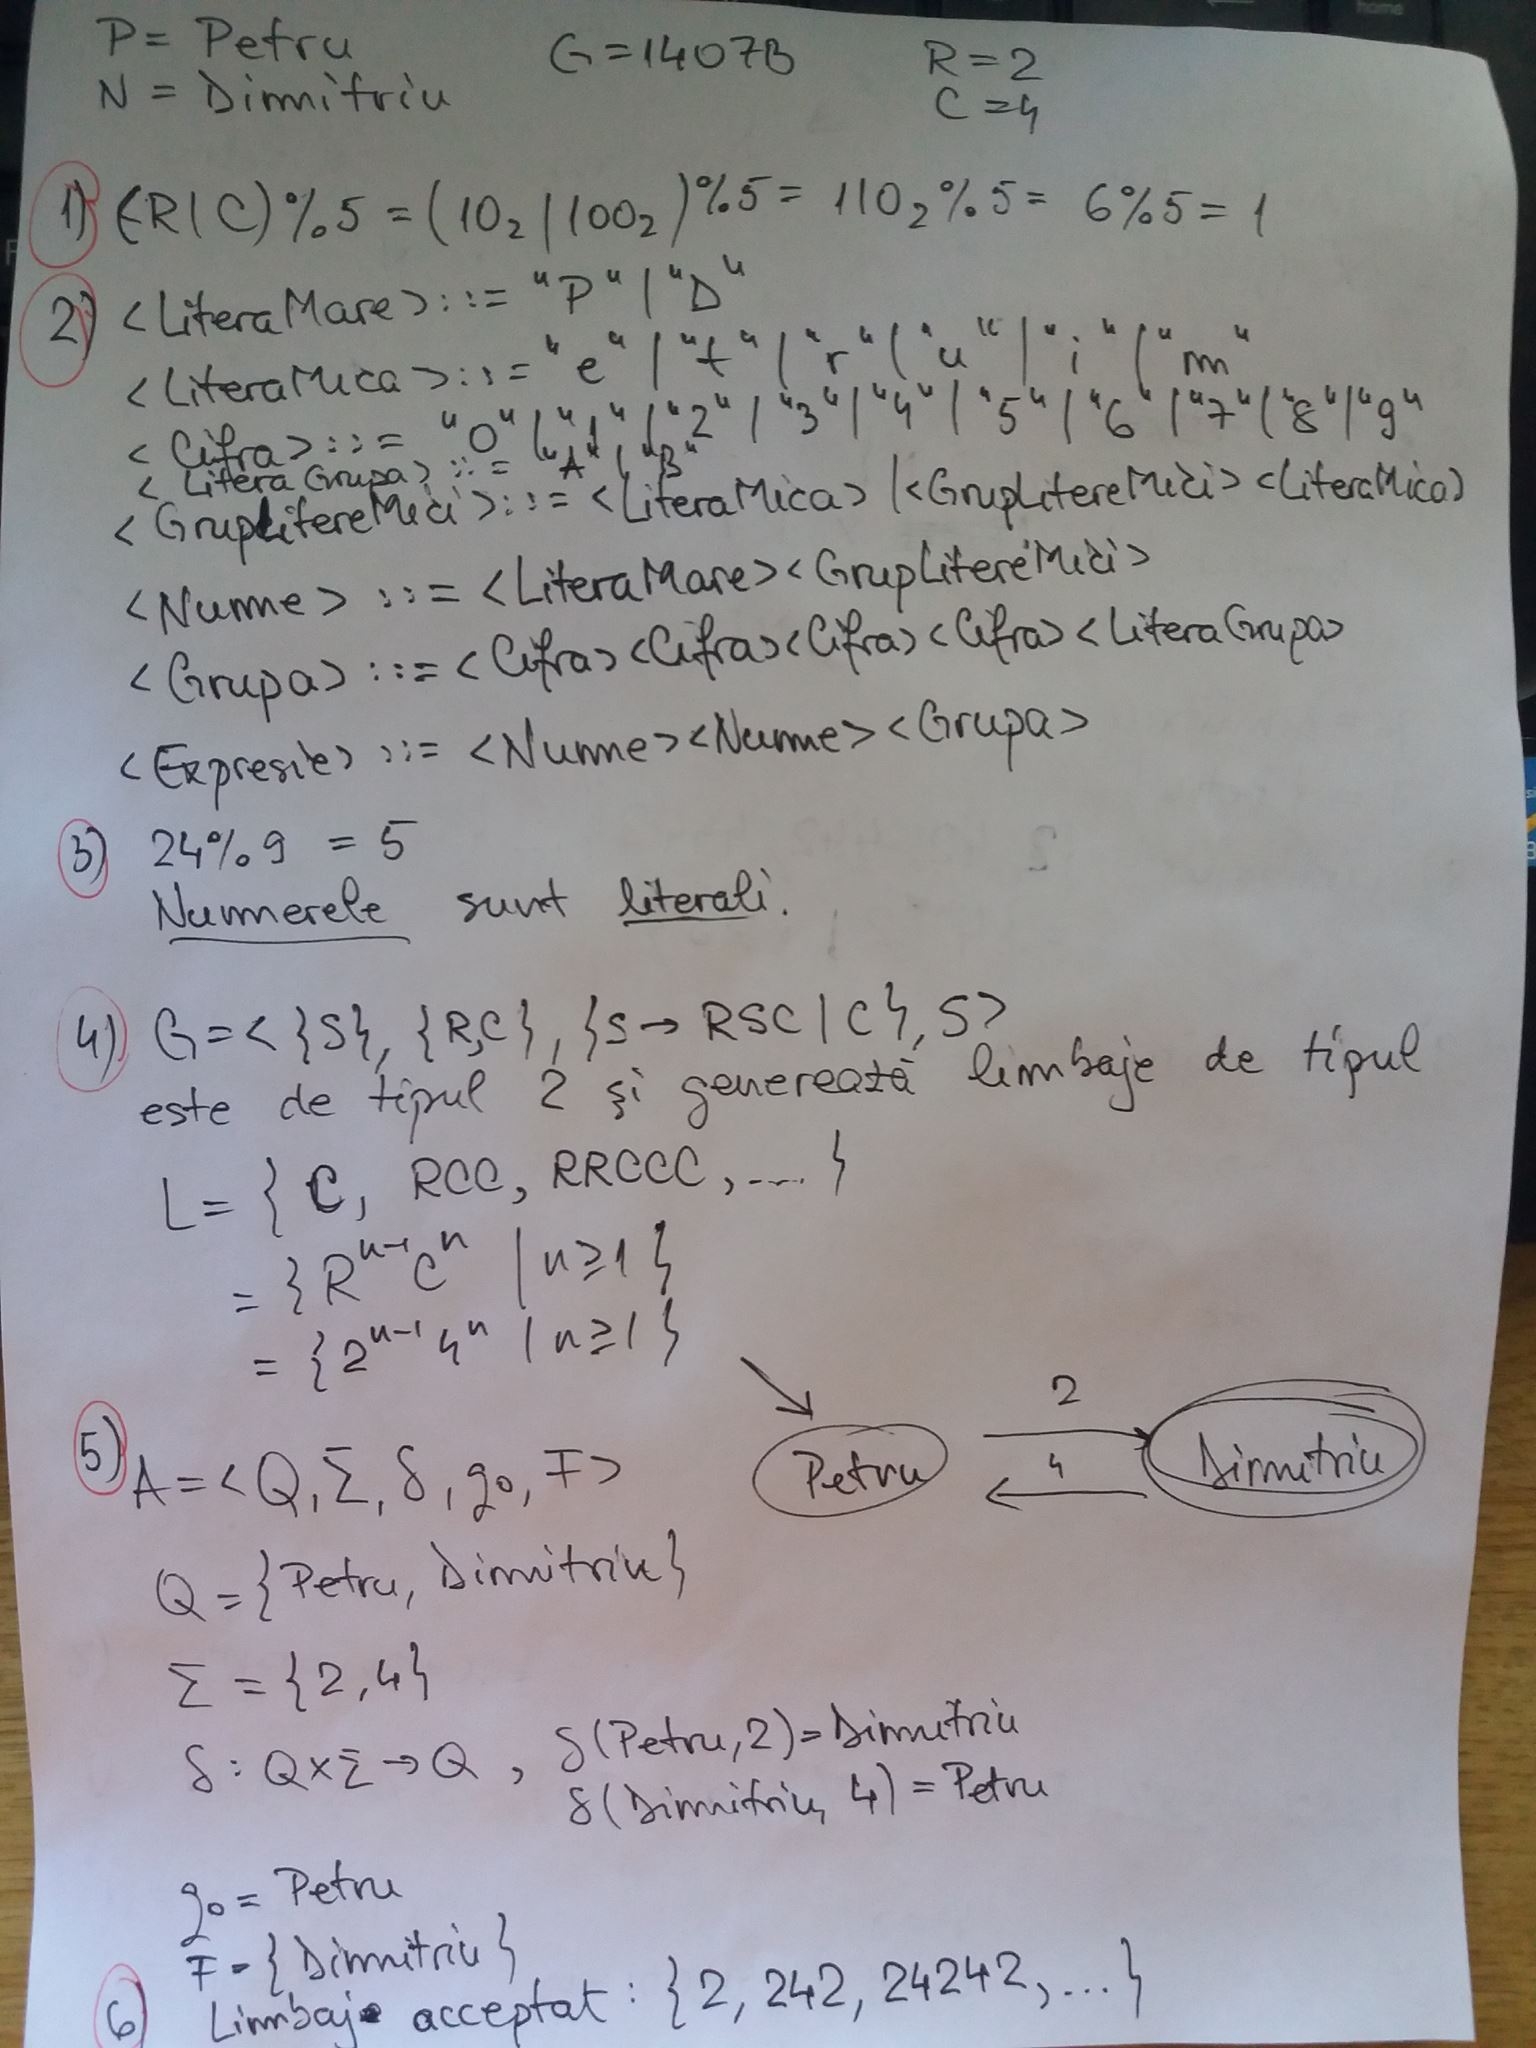 P= Petru G=1407B R=2
N = Dimitriu C=4
1) (R|C)%5 = (10₂|100₂)%5 = 110₂%5 = 6%5=1
2) <LiteraMare>::= "P" | "D"
<LiteraMica>::= "e" | "t" | "r" | "u" | "i" | "m"
<Cifra>::= "0" | "1" | "2" | "3" | "4" | "5" | "6" | "7" | "8" | "9"
<LiteraGrupa>::= "A" | "B"
<GrupLitereMici>::= <LiteraMica> |<GrupLitereMici><LiteraMica>
<Nume>::= <LiteraMare><GrupLitereMici>
<Grupa>::= <Cifra><Cifra><Cifra><Cifra><LiteraGrupa>
<Expresie>::= <Nume><Nume><Grupa>
3) 24%9 = 5
Numerele sunt literali.
4) G=<{S}, {R,C}, {S→ RSC | C}, S>
este de tipul 2 și generează limbaje de tipul
L= { C, RCC, RRCCC, ... }
= {Rⁿ⁻¹Cⁿ | n≥1}
= {2ⁿ⁻¹4ⁿ | n≥1}
5) A=<Q, Σ, δ, q₀, F>
2
Petru 4 Dimitriu
Q={Petru, Dimitriu}
Σ = {2,4}
δ: Q×Σ→Q, δ(Petru,2)=Dimitriu
δ(Dimitriu, 4) = Petru
q₀= Petru
F={Dimitriu}
6) Limbaje acceptat: {2, 242, 24242, ...}